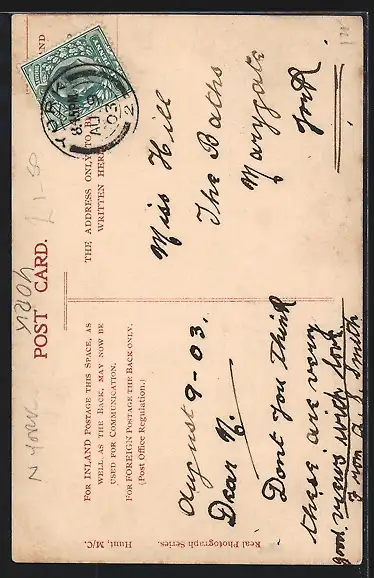 POST CARD.
FOR INLAND POSTAGE THIS SPACE, AS
WELL AS THE BACK, MAY NOW BE
USED FOR COMMUNICATION.
FOR FOREIGN POSTAGE THE BACK ONLY.
(Post Office Regulation.)
THE ADDRESS ONLY TO BE
WRITTEN HERE
August 9-03.
Dear N.
Dont you think
these are very
good. views with love
from A. J. Smith
Miss Hill
The Baths
Marygate
York
YORK
AU 9
03
2
York
N York
Hunt, M/C.
Real Photograph Series.